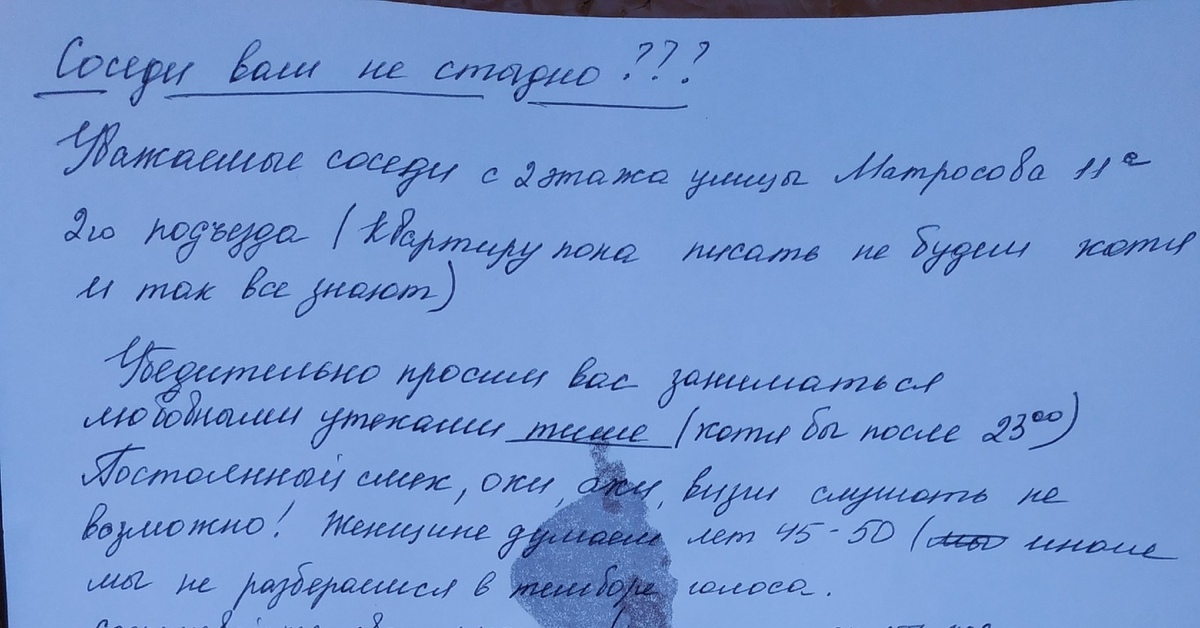 Соседи вам не стыдно???
Уважаемые соседи с 2 этажа улицы Матросова 11а
2го подъезда (квартиру пока писать не будем хотя
и так все знают)
Убедительно просим вас заниматься
любовными утехами тише (хотя бы после 23⁰⁰)
Постоянный смех, охи, ахи, визги слушать не
возможно! Женщине думаем лет 45-50 (иначе
мы не разбераемся в тембре голоса.